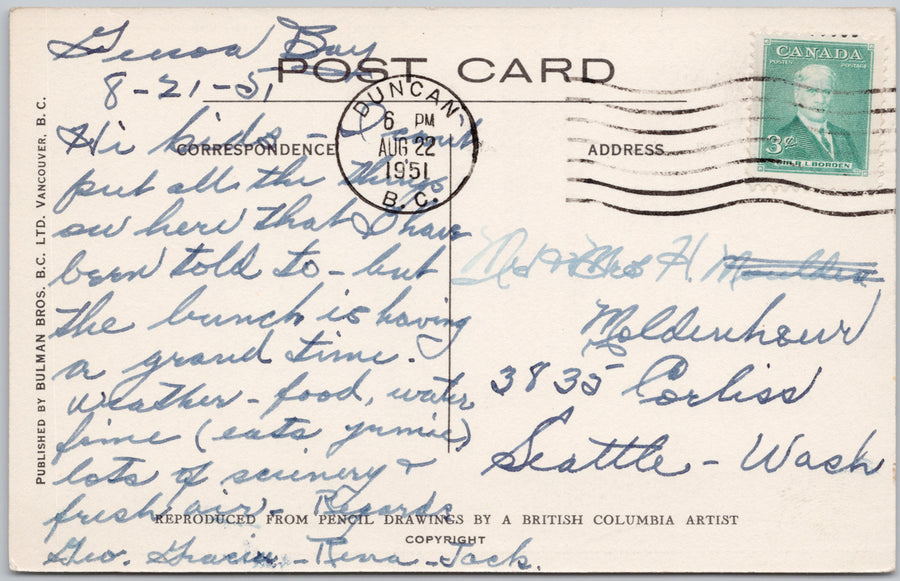 Genoa Bay
8-21-51
POST CARD
CANADA
POSTES POSTAGE
3¢
SIR R. L. BORDEN
DUNCAN
6 PM
AUG 22
1951
B. C.
CORRESPONDENCE
ADDRESS
Hi kids - I can't
put all the things
on here that I have
been told to - but
the bunch is having
a grand time.
Weather - food, water,
fime (eats yumie)
lots of scienery &
fresh air - Regards
Geo. Gracie - Rena - Jack.
Mr & Mrs H.
Moldenhour
3835 Corliss
Seattle - Wash
REPRODUCED FROM PENCIL DRAWINGS BY A BRITISH COLUMBIA ARTIST
COPYRIGHT
PUBLISHED BY BULMAN BROS. B.C. LTD. VANCOUVER, B. C.